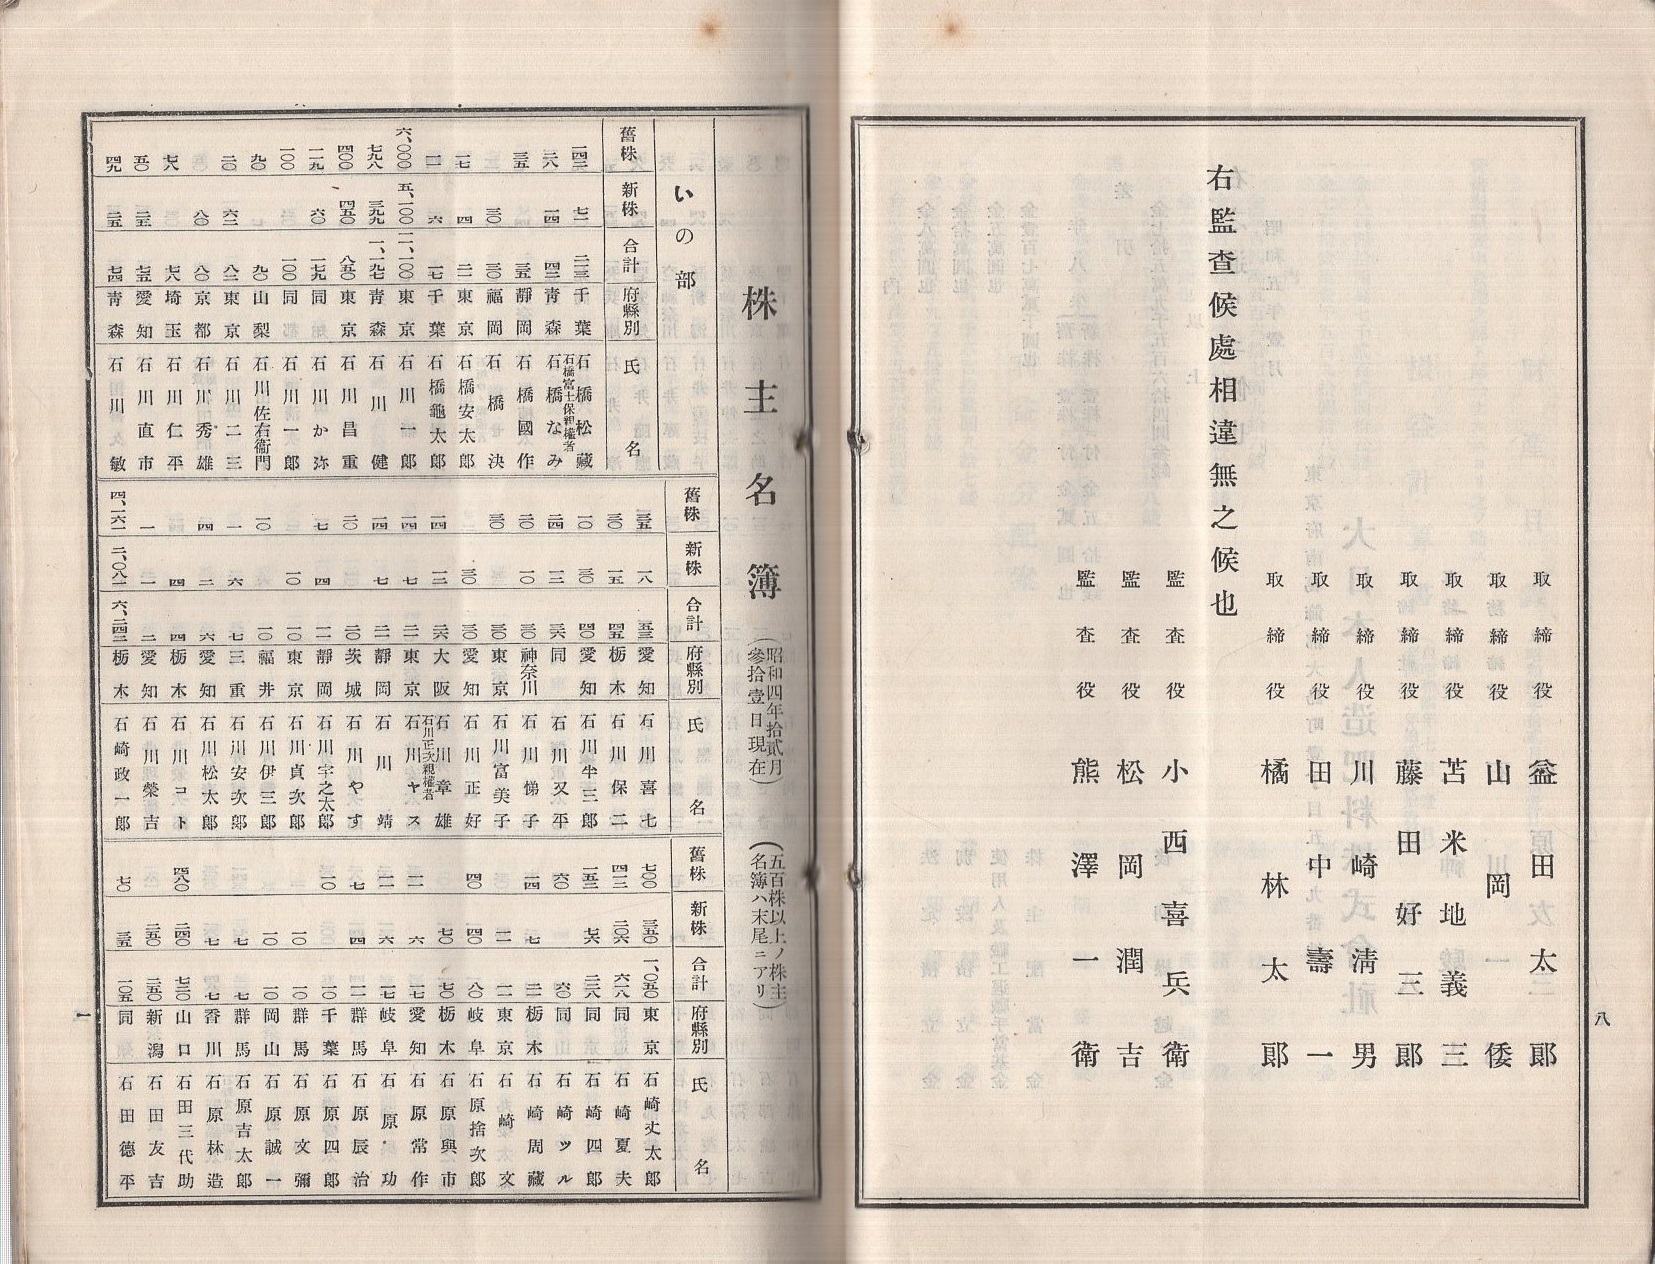 八
取締役 益田太郎
取締役 山岡倭
取締役 苫米地義三
取締役 藤田好三郎
取締役 川崎淸男
取締役 田中壽一
取締役 橘林太郎
右監査候處相違無之候也
監査役 小西喜兵衛
監査役 松岡潤吉
監査役 熊澤一衛
株主名簿
(昭和四年拾貳月
參拾壹日現在)
(五百株以上ノ株主
名簿ハ末尾ニアリ)
いの部
舊株 新株 合計 府縣別 氏名
千葉 石橋松藏
石橋富士保親權者
靑森 石橋なみ
靜岡 石橋國作
福岡 三〇 三〇 石橋決
東京 一七 四 二一 石橋安太郎
千葉 石橋龜太郎
東京 石川一郎
靑森 七九八 三九九 一、一九七 石川健
東京 四〇〇 四五〇 八五〇 石川昌重
同 一一九 六〇 一七九 石川か弥
同 一〇〇 一〇〇 石川一郎
山梨 九〇 九〇 石川佐右衞門
東京 石川二三
京都 八〇 八〇 石川秀雄
埼玉 七八 七八 石川仁平
愛知 五〇 二五 七五 石川直市
靑森 四九 二五 七四 石川敏
舊株 新株 合計 府縣別 氏名
三五 一八 五三 愛知 石川喜七
三〇 一五 四五 栃木 石川保二
一〇 三〇 四〇 愛知 石川牛三郎
二四 一二 三六 同 石川又平
二〇 一〇 三〇 神奈川 石川悌子
三〇 三〇 東京 石川富美子
愛知 石川正好
一四 一二 二六 大阪 石川章雄
石川正次親權者
一四 七 二一 東京 石川ヤス
一四 七 二一 靜岡 石川靖
二〇 二〇 茨城 石川やす
七 四 一一 靜岡 石川宇之太郎
一〇 一〇 東京 石川貞次郎
一〇 一〇 福井 石川伊三郎
一 六 七 三重 石川安次郎
四 二 六 愛知 石川松太郎
四 四 栃木 石川コト
一 一 二 愛知 石川榮吉
四、一六一 二、〇八一 六、二四二 栃木 石崎政一郎
舊株 新株 合計 府縣別 氏名
七〇〇 三五〇 一、〇五〇 東京 石崎丈太郎
四一二 二〇六 六一八 同 石崎夏夫
一五二 七六 二二八 同 石崎四郎
六〇 六〇 同 石崎ツル
一四 七 二一 栃木 石崎周藏
一一 一一 東京 石崎文
四〇 四〇 八〇 岐阜 石原捨次郎
七〇 七〇 栃木 石原與市
一一 六 一七 愛知 石原常作
一一 六 一七 岐阜 石原功
七 四 一一 群馬 石原辰治
一〇 一〇 千葉 石原四郎
一〇 一〇 群馬 石原文彌
一〇 一〇 岡山 石原誠一
七 七 群馬 石原吉太郎
七 七 香川 石原林造
四八〇 二四〇 七二〇 山口 石田三代助
二五〇 二五〇 新潟 石田友吉
七〇 三五 一〇五 同 石田德平
一